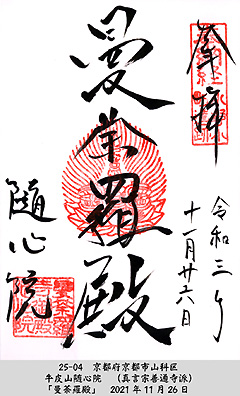 奉拝
令和三年
十一月廿六日
曼荼羅殿
随心院
25-04 京都府京都市山科区
牛皮山随心院 (真言宗善通寺派)
「曼荼羅殿」 2021年11月26日